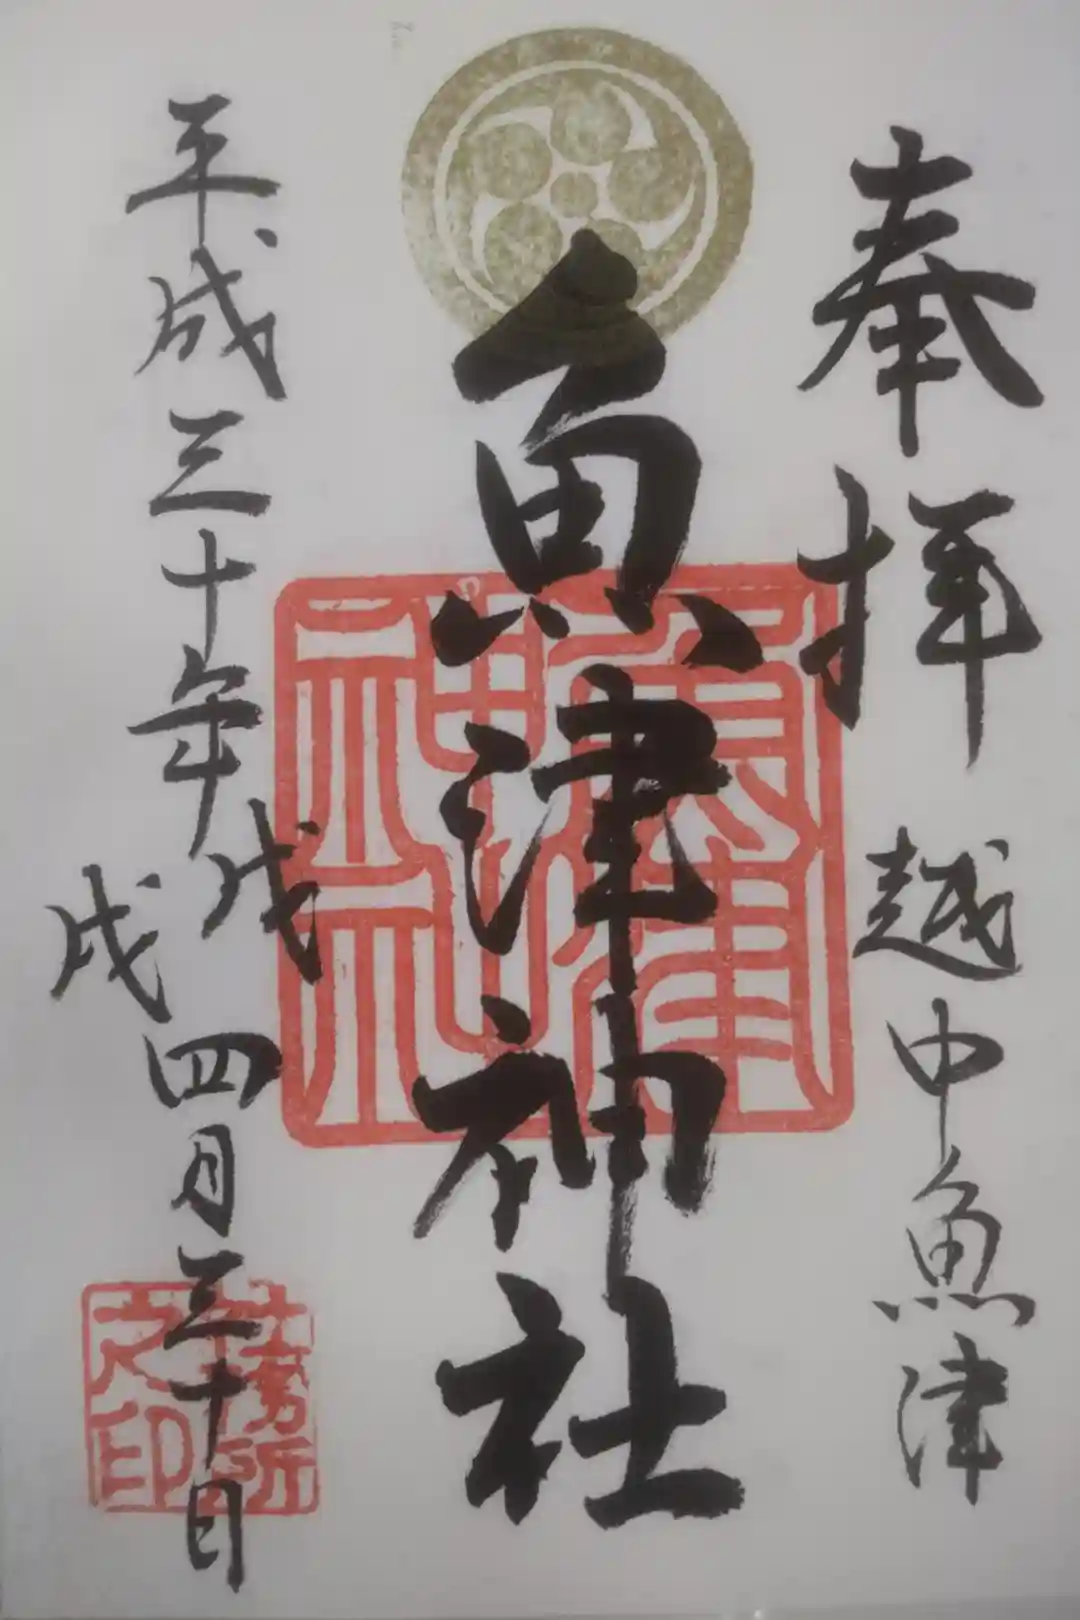 奉拝 越中魚津
魚津神社
平成三十年戊戌四月三十日
魚津神社
社務所之印